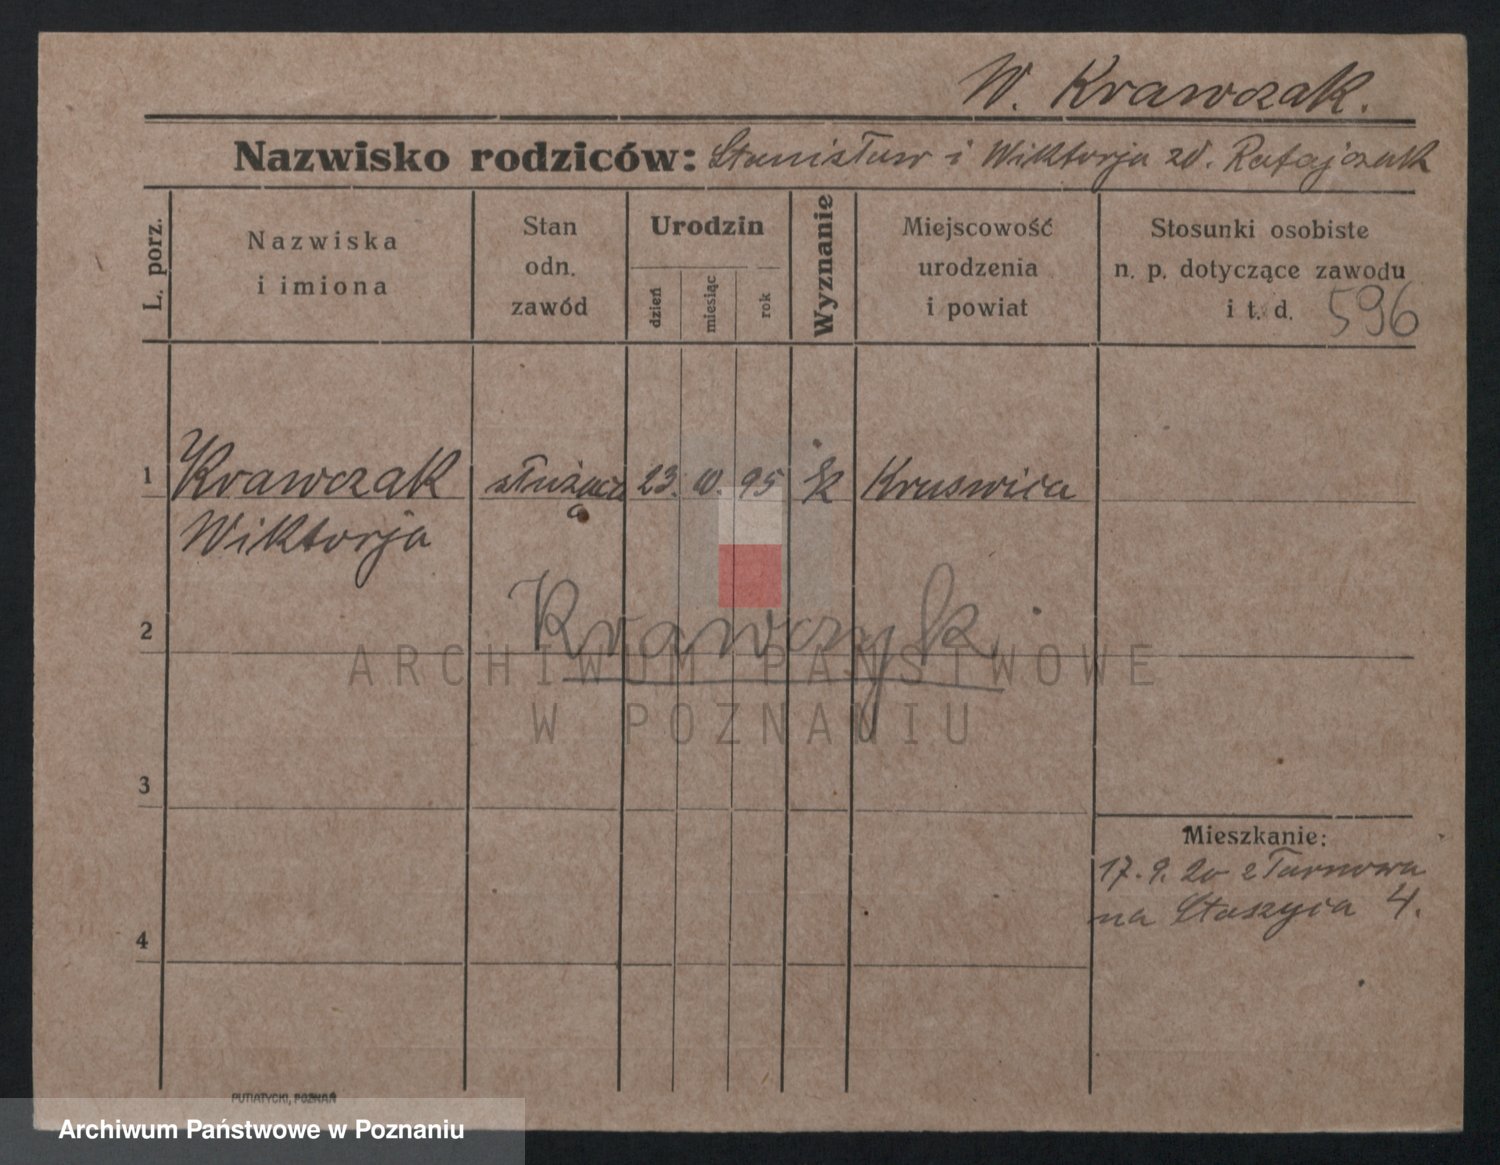 W. Krawczak.
Nazwisko rodziców: Stanisław i Wiktorja zd. Ratajczak
L. porz.
Nazwiska
i imiona
Stan
odn.
zawód
Urodzin
dzień
miesiąc
rok
Wyznanie
Miejscowość
urodzenia
i powiat
Stosunki osobiste
n. p. dotyczące zawodu
i t. d. 596
1 Krawczak służąca 23. 95 k Kruswica
Wiktorja
Krawczyk
2
ARCHIWUM PAŃSTWOWE
W POZNANIU
3
Mieszkanie:
17. 9. 20 z Tarnowa
na Staszyca 4.
4
PUTIATYCKI, POZNAŃ
Archiwum Państwowe w Poznaniu